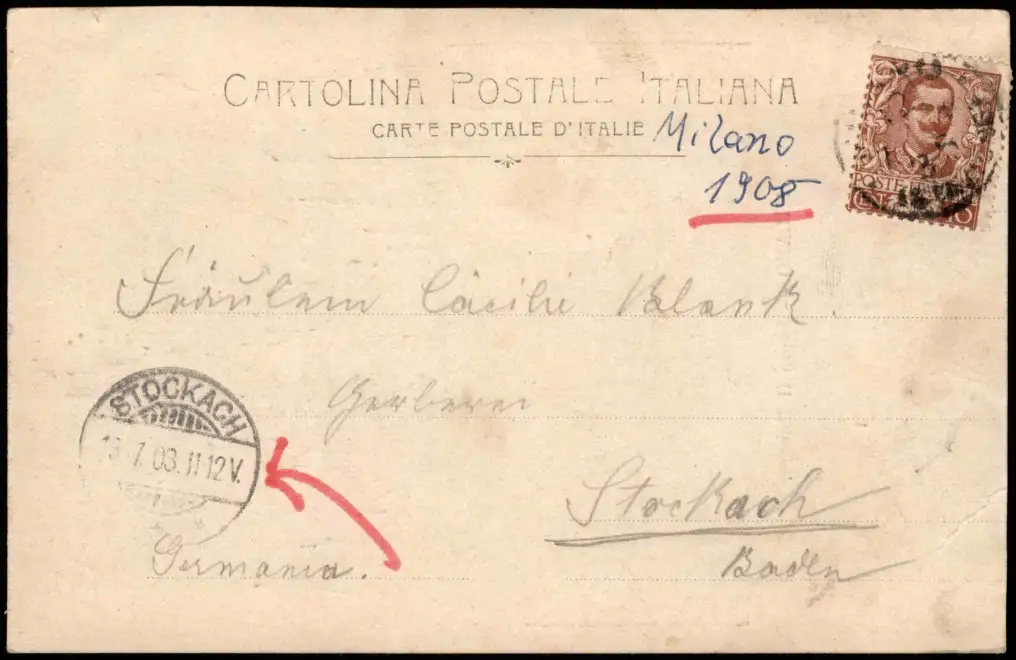 CARTOLINA POSTALE ITALIANA
CARTE POSTALE D'ITALIE
Milano
1908
POSTE
Fräulein Cäcilie Blank.
STOCKACH
13 7.03.11-12V.
Gerberei
Stockach
Germania.
Baden